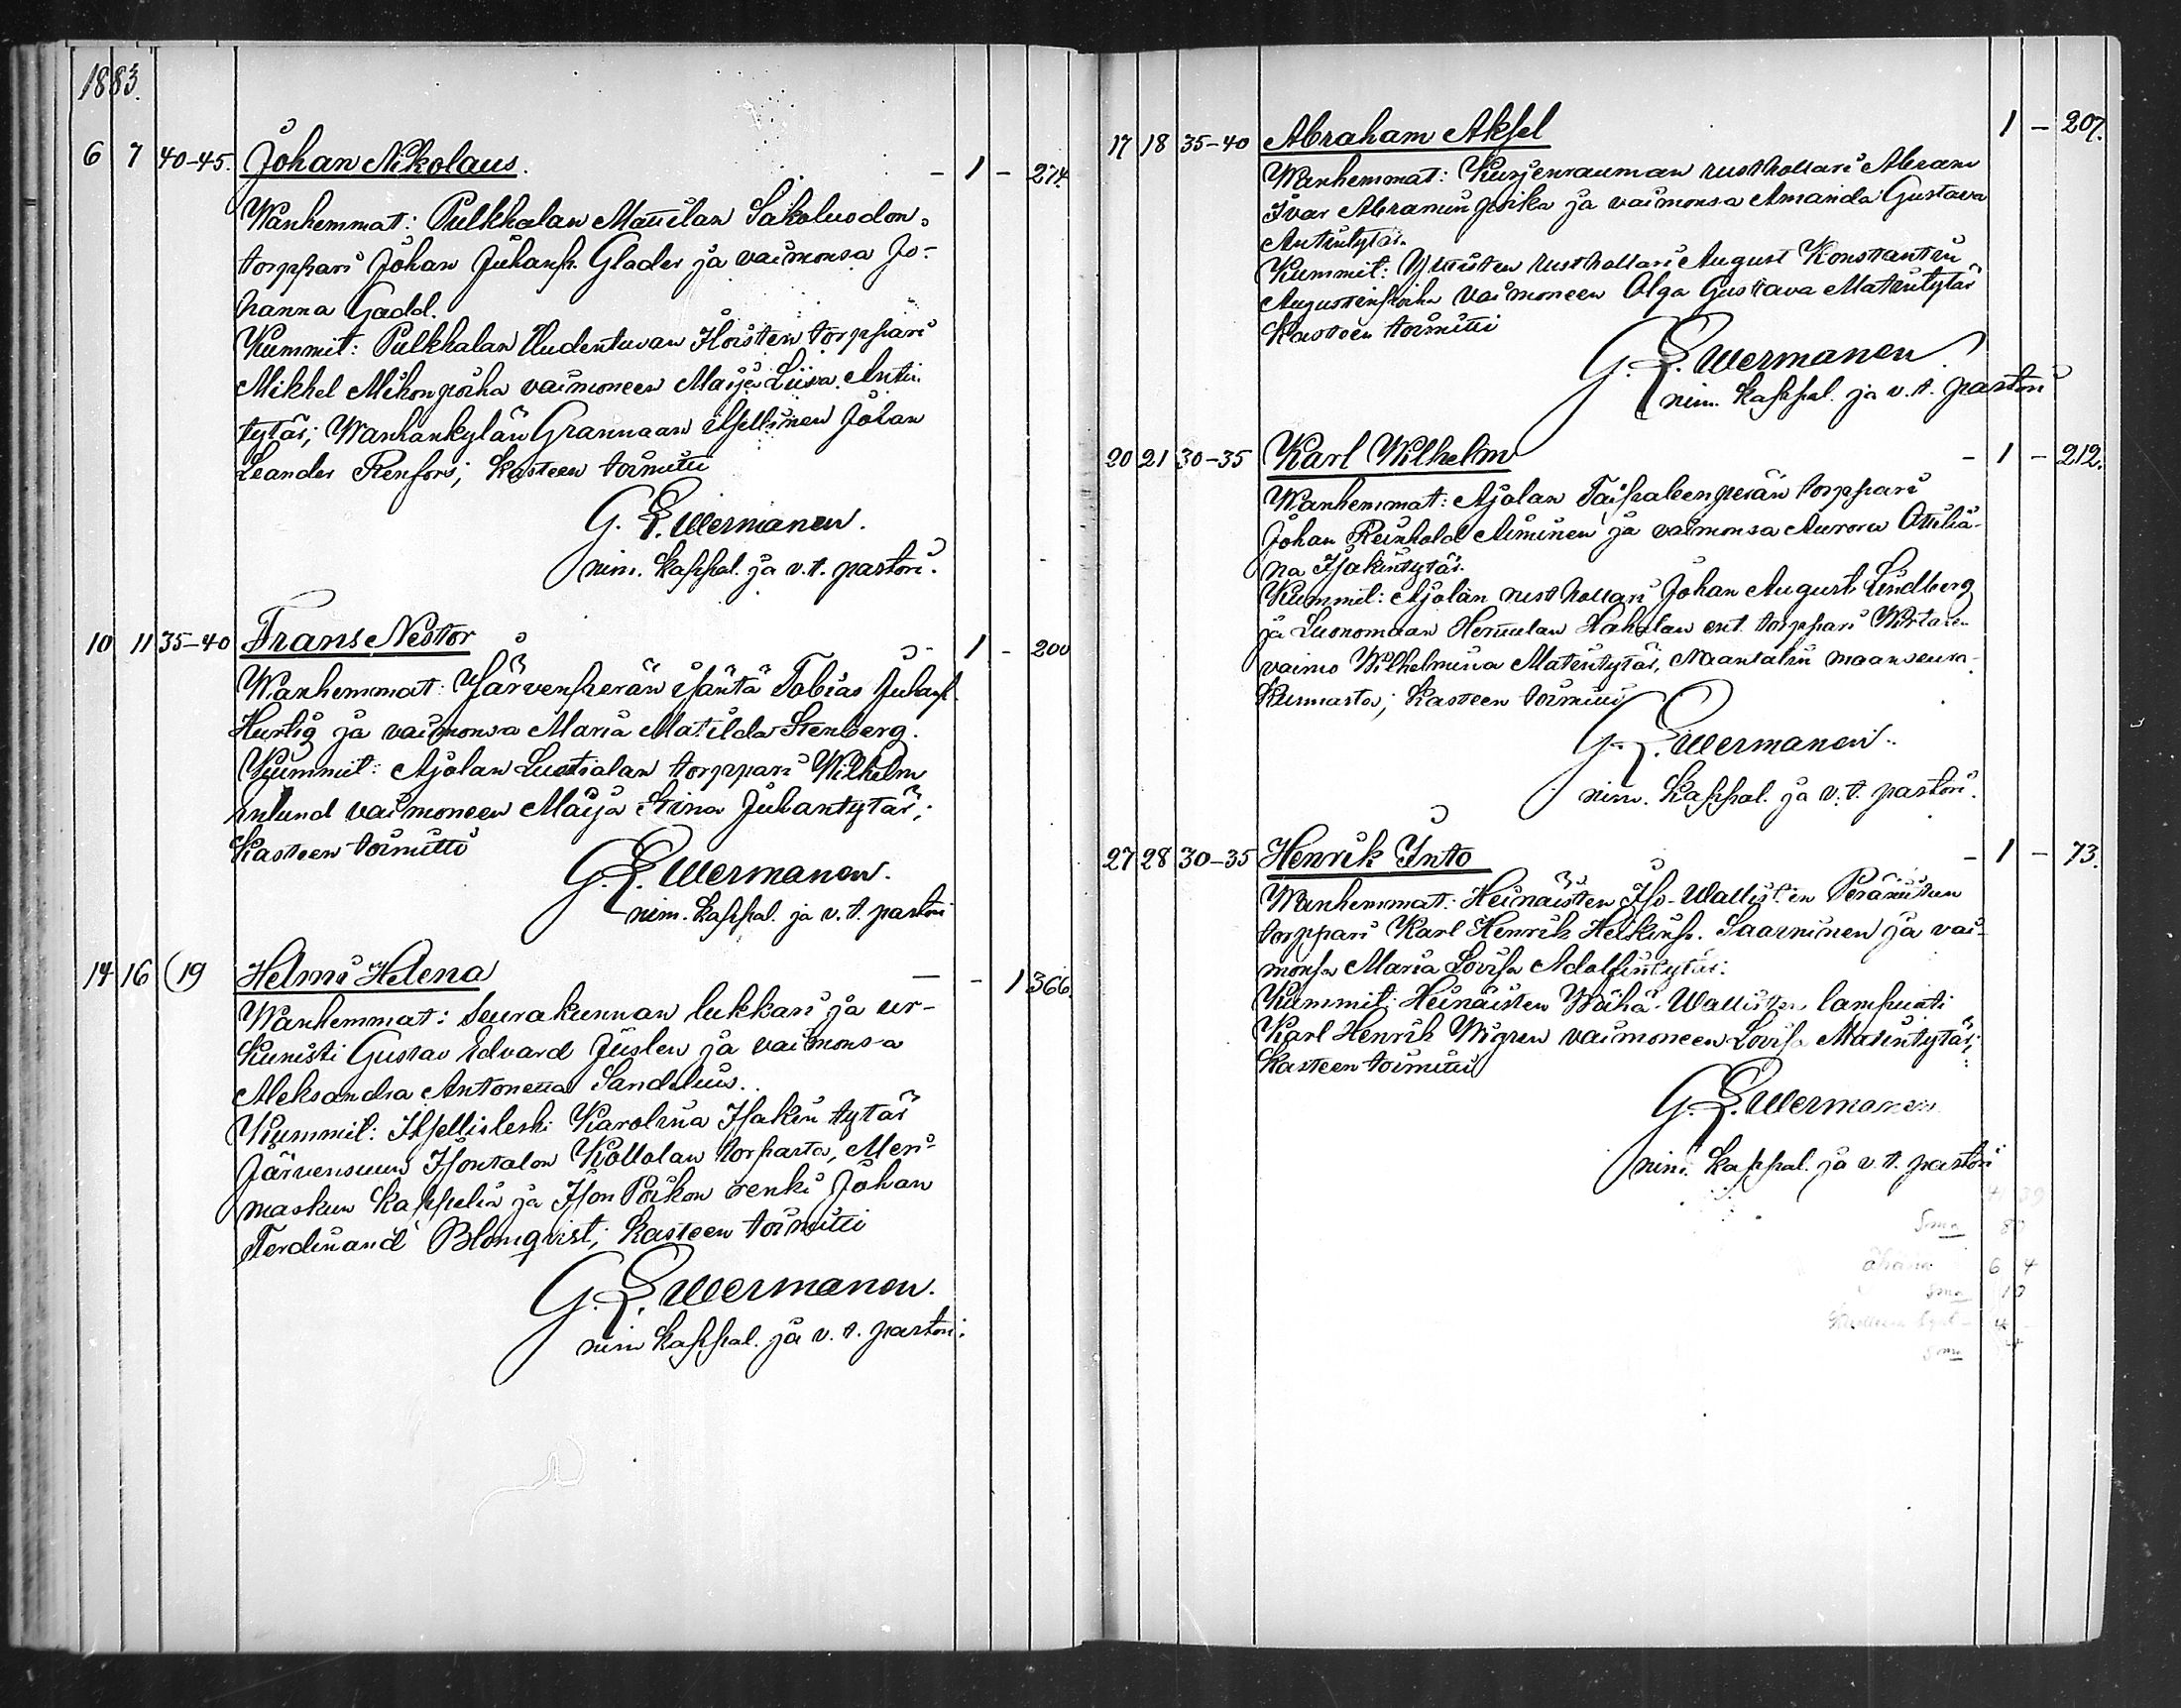 1883.
6 7 40-45. Johan Nikolaus. - 1 - 274.
Wanhemmat: Pulkkalan Mattilan Sakoluodon
torppari Johan Juhanp. Glader ja vaimonsa Jo-
hanna Gadd.
Kummit: Pulkkalan Uudentuvan Hoisten torppari
Mikkel Mikonpoika vaimoneen Maija Liisa Antin
tytär; Wanhankylän Grannaan itsellinen Johan
Leander Renfors; Kasteen toimitti
G. E. Wermanen.
nim. kappal. ja v. t. pastori.
10 11 35-40 Frans Nestor - 1 - 200
Wanhemmat: Järvenperän isäntä Tobias Juhanp.
Hurtig ja vaimonsa Maria Matilda Stenberg.
Kummit: Ajolan Luotialan torppari Wilhelm
Enlund vaimoneen Maija Stina Juhantytär;
Kasteen toimitti
G. E. Wermanen.
nim. kappal. ja v. t. pastori
14 16 (19 Helmi Helena - - 1 366.
Wanhemmat: Seurakunnan lukkari ja ur-
kunisti Gustav Edvard Juslen ja vaimonsa
Aleksandra Antonetta Sandelius.
Kummit: Itsellisleski Karolina Isakin tytär
Järvensuun Isontalon Kollolan torpasta, Meri-
maskun kappelia ja Ison Poikon renki Johan
Ferdinand Blomqvist; Kasteen toimitti
G. E. Wermanen.
nim kappal. ja v. t. pastori.
17 18 35-40 Abraham Aksel 1 - 207.
Wanhemmat: Kurjenrauman rusthollari Abram
Ivar Abramin poika ja vaimonsa Amanda Gustava
Antintytär.
Kummit: rusthollari August Konstantin
Augustinpoika vaimoneen Olga Gustava Matintytär
Kasteen toimitti
G. E. Wermanen
nim. kappal. ja v. t. pastori
20 21 30-35 Karl Wilhelm - 1 - 212.
Wanhemmat: Ajolan Taipaleenperän torppari
Johan Reinhold Niminen ja vaimonsa Aurora Otilia-
na Isakintytär.
Kummit: Ajolan rusthollari Johan August Lindberg
ja Luonomaan Hahalan ent. torppari Wirtasen
vaimo Wilhelmina Matintytär, Naantalin maanseura-
kunnasta; Kasteen toimitti
G. E. Wermanen.
nim. kappal. ja v. t. pastori.
27 28 30-35 Henrik Into - 1 - 73.
Wanhemmat: Heinäisten Iso-Wallisten
torppari Karl Henrik Heikinp. Saarninen ja vai-
monsa Maria Lovisa Adolfintytär.
Kummit: Heinäisten Wähä-Wallisten lampuoti
Karl Henrik Wigren vaimoneen Lovisa Matintytär;
Kasteen toimitti
G. E. Wermanen
nim. kappal. ja v. t. pastori